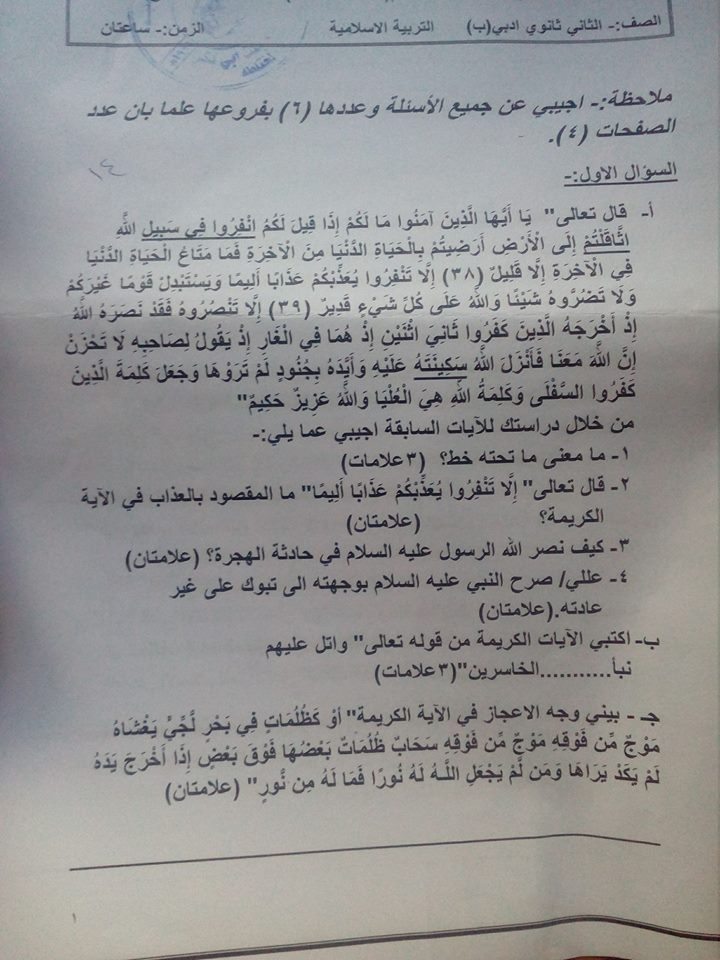 الصف:- الثاني ثانوي ادبي(ب) التربية الاسلامية الزمن:- ساعتان
ملاحظة:- اجيبي عن جميع الأسئلة وعددها (٦) بفروعها علما بان عدد
الصفحات (٤).
١٤
السؤال الاول:-
أ- قال تعالى" يَا أَيُّهَا الَّذِينَ آمَنُوا مَا لَكُمْ إِذَا قِيلَ لَكُمُ انْفِرُوا فِي سَبِيلِ اللَّهِ
اثَّاقَلْتُمْ إِلَى الْأَرْضِ أَرَضِيتُمْ بِالْحَيَاةِ الدُّنْيَا مِنَ الْآخِرَةِ فَمَا مَتَاعُ الْحَيَاةِ الدُّنْيَا
فِي الْآخِرَةِ إِلَّا قَلِيلٌ (٣٨) إِلَّا تَنْفِرُوا يُعَذِّبْكُمْ عَذَابًا أَلِيمًا وَيَسْتَبْدِلْ قَوْمًا غَيْرَكُمْ
وَلَا تَضُرُّوهُ شَيْئًا وَاللَّهُ عَلَى كُلِّ شَيْءٍ قَدِيرٌ (٣٩) إِلَّا تَنْصُرُوهُ فَقَدْ نَصَرَهُ اللَّهُ
إِذْ أَخْرَجَهُ الَّذِينَ كَفَرُوا ثَانِيَ اثْنَيْنِ إِذْ هُمَا فِي الْغَارِ إِذْ يَقُولُ لِصَاحِبِهِ لَا تَحْزَنْ
إِنَّ اللَّهَ مَعَنَا فَأَنْزَلَ اللَّهُ سَكِينَتَهُ عَلَيْهِ وَأَيَّدَهُ بِجُنُودٍ لَمْ تَرَوْهَا وَجَعَلَ كَلِمَةَ الَّذِينَ
كَفَرُوا السُّفْلَى وَكَلِمَةُ اللَّهِ هِيَ الْعُلْيَا وَاللَّهُ عَزِيزٌ حَكِيمٌ"
من خلال دراستك للآيات السابقة اجيبي عما يلي:-
١- ما معنى ما تحته خط؟ (٣علامات)
٢- قال تعالى" إِلَّا تَنْفِرُوا يُعَذِّبْكُمْ عَذَابًا أَلِيمًا" ما المقصود بالعذاب في الآية
الكريمة؟ (علامتان)
٣- كيف نصر الله الرسول عليه السلام في حادثة الهجرة؟ (علامتان)
٤- عللي/ صرح النبي عليه السلام بوجهته الى تبوك على غير
عادته.(علامتان)
ب- اكتبي الآيات الكريمة من قوله تعالى" واتل عليهم
نبأ...........الخاسرين"(٣علامات)
جـ - بيني وجه الاعجاز في الآية الكريمة" أَوْ كَظُلُمَاتٍ فِي بَحْرٍ لُّجِّيٍّ يَغْشَاهُ
مَوْجٌ مِّن فَوْقِهِ مَوْجٌ مِّن فَوْقِهِ سَحَابٌ ظُلُمَاتٌ بَعْضُهَا فَوْقَ بَعْضٍ إِذَا أَخْرَجَ يَدَهُ
لَمْ يَكَدْ يَرَاهَا وَمَن لَّمْ يَجْعَلِ اللَّـهُ لَهُ نُورًا فَمَا لَهُ مِن نُّورٍ" (علامتان)
١